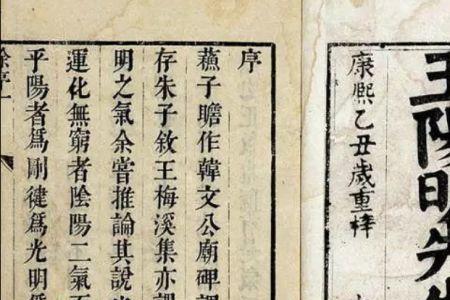 王陽明先
康熙乙丑歲重梓
序
蘓子瞻作韓文公廟碑謂
存朱子敘王梅溪集亦謂
明之氣余嘗推論其說
運化無窮者陰陽二氣
乎陽者爲剛健爲光明
序一